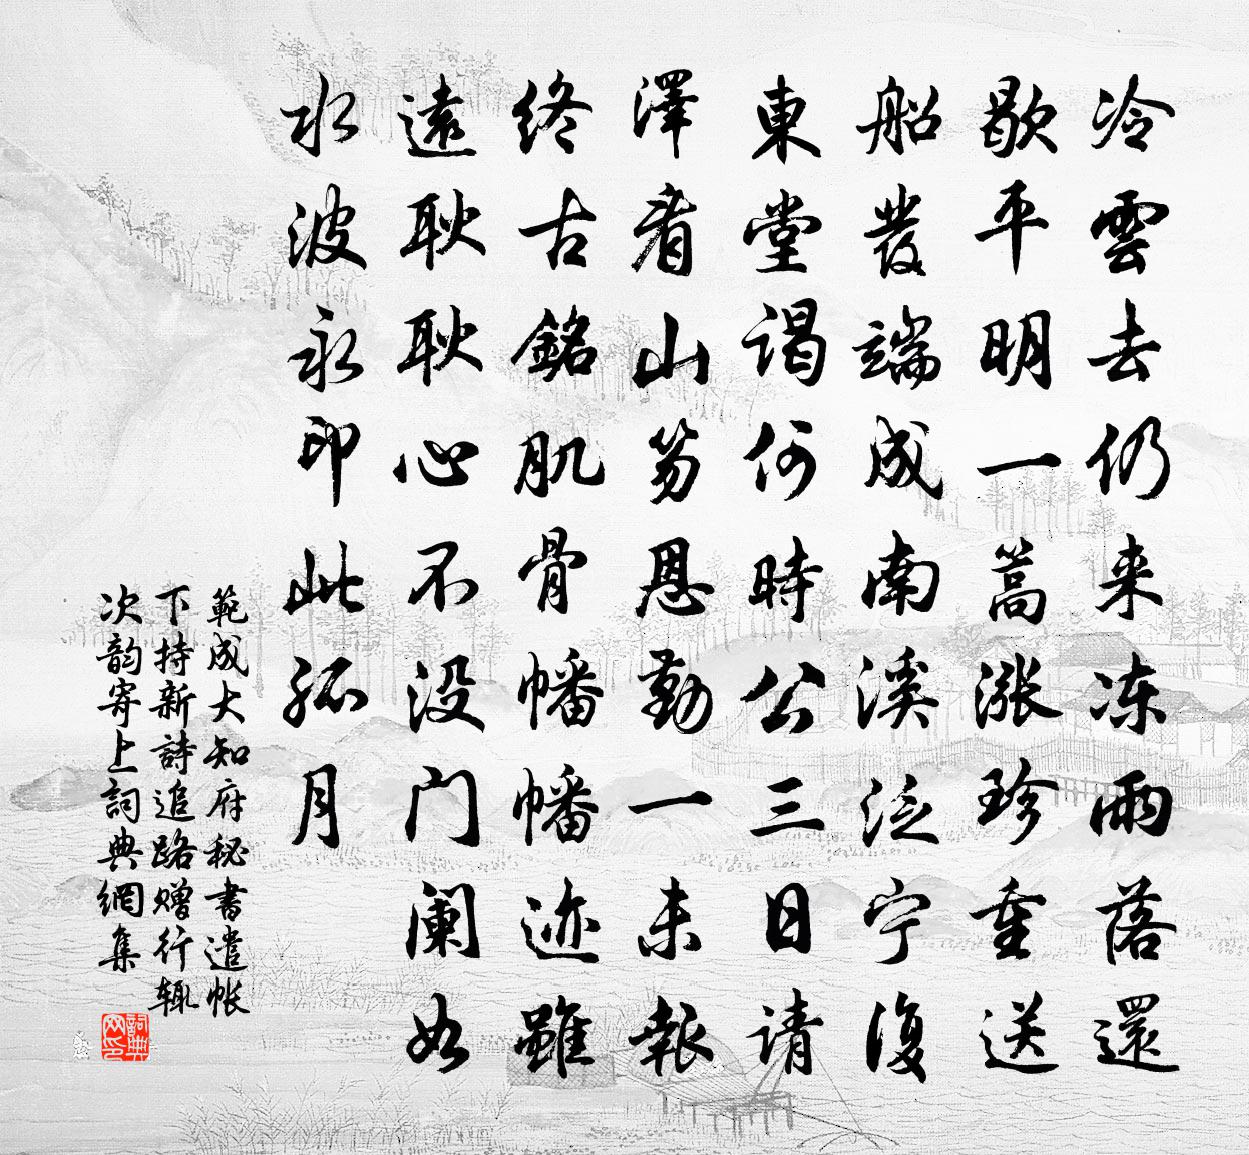 冷雲去仍来冻雨落還
歇平明一蒿漲珍重送
船發端成南溪泛宁復
東堂谒何時公三日请
澤看山笏恩勤一未報
终古銘肌骨幡幡迹雖
遠耿耿心不没门阑如
水波永印此孤月
範成大知府秘書遣帐
下持新詩追路赠行辄
次韵寄上詞典網集
詞典
网印